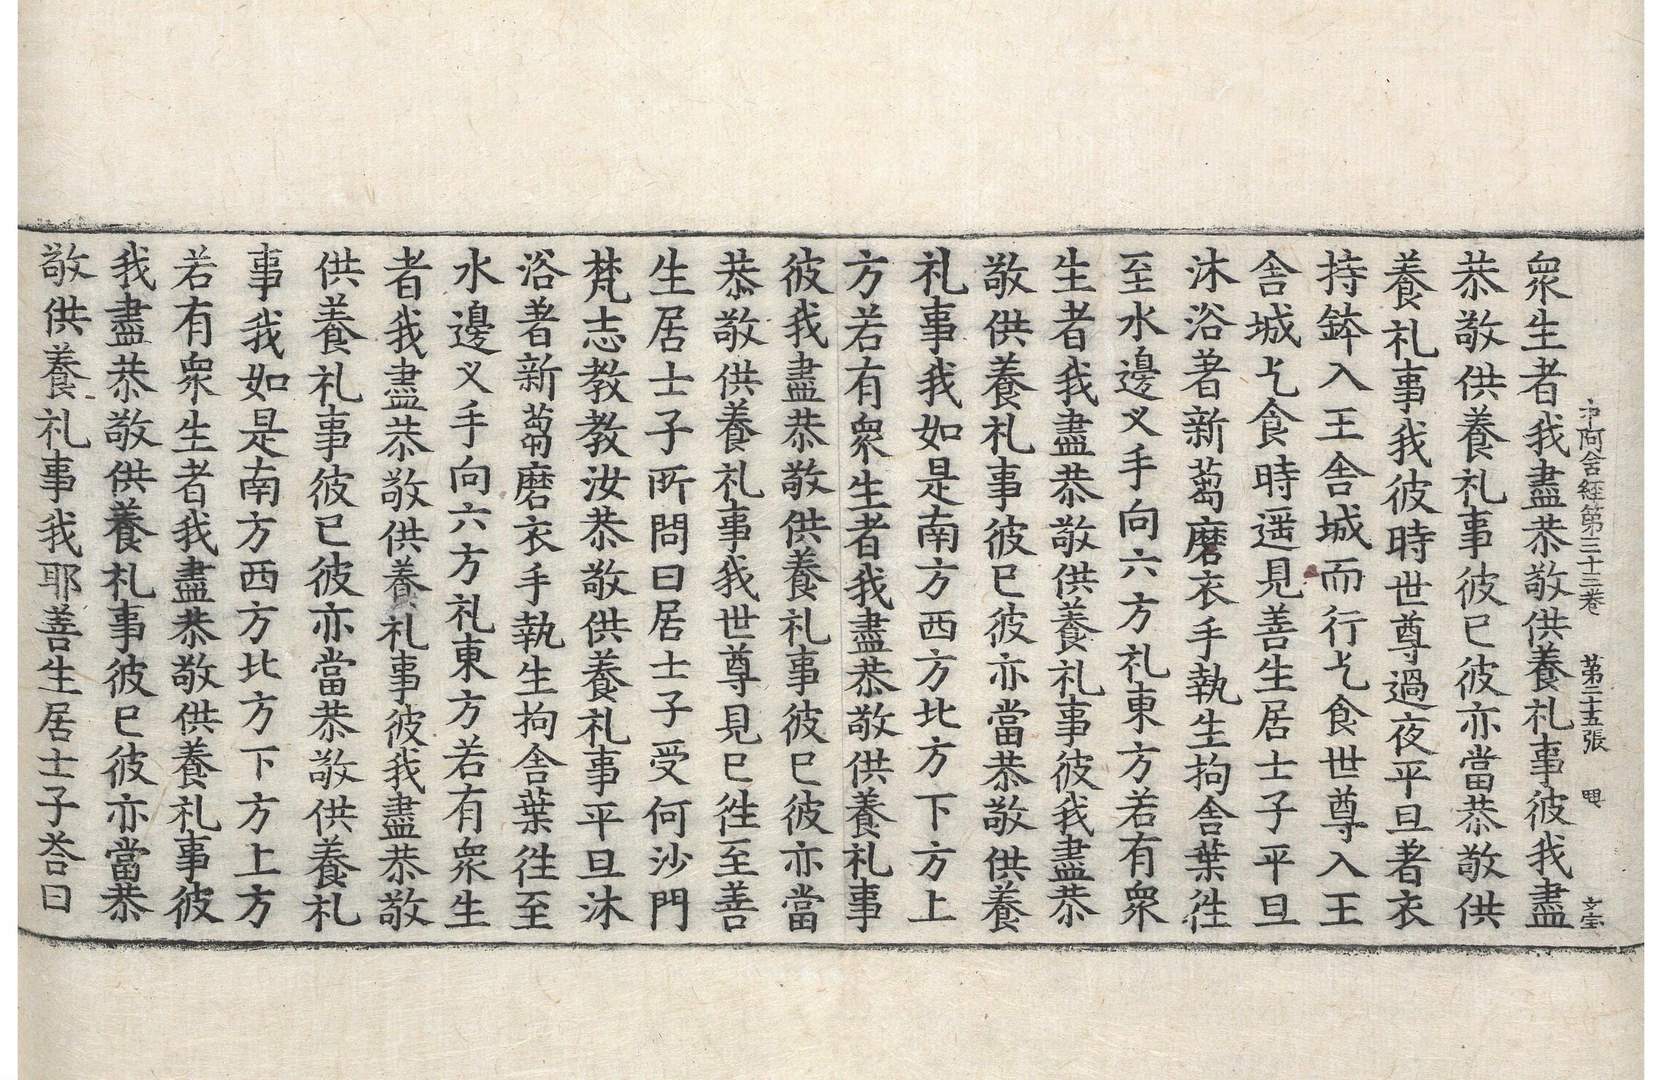 中阿含經第三十三卷 第二十五張 文宝
衆生者我盡恭敬供養礼事彼我盡
恭敬供養礼事彼已彼亦當恭敬供
養礼事我彼時世尊過夜平旦著衣
持鉢入王舍城而行乞食世尊入王
舍城乞食時遥見善生居士子平旦
沐浴著新蒭磨衣手執生拘舍葉徃
至水邊叉手向六方礼東方若有衆
生者我盡恭敬供養礼事彼我盡恭
敬供養礼事彼已彼亦當恭敬供養
礼事我如是南方西方北方下方上
方若有衆生者我盡恭敬供養礼事
彼我盡恭敬供養礼事彼已彼亦當
恭敬供養礼事我世尊見已徃至善
生居士子所問曰居士子受何沙門
梵志教教汝恭敬供養礼事平旦沐
浴著新蒭磨衣手執生拘舍葉徃至
水邊叉手向六方礼東方若有衆生
者我盡恭敬供養礼事彼我盡恭敬
供養礼事彼已彼亦當恭敬供養礼
事我如是南方西方北方下方上方
若有衆生者我盡恭敬供養礼事彼
我盡恭敬供養礼事彼已彼亦當恭
敬供養礼事我耶善生居士子荅曰